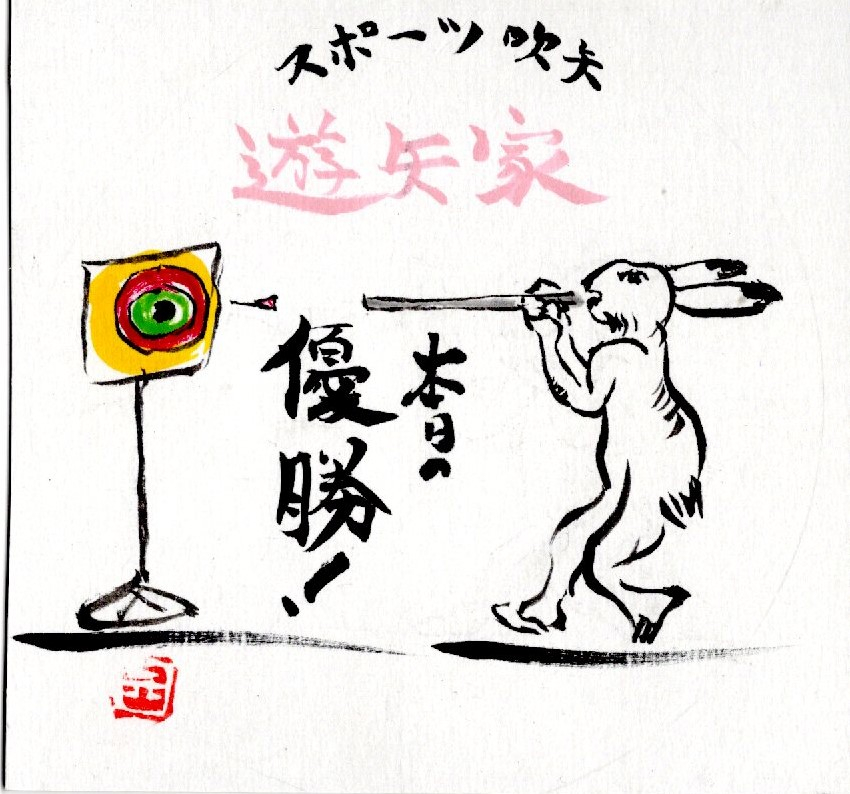 スポーツ吹矢
遊矢家
本日の
優勝！